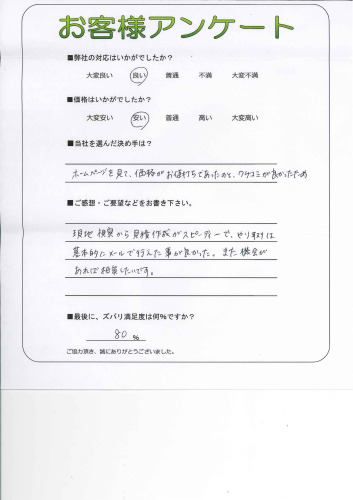 お客様アンケート
■弊社の対応はいかがでしたか?
大変良い 良い 普通 不満 大変不満
■価格はいかがでしたか?
大変安い 安い 普通 高い 大変高い
■当社を選んだ決め手は?
ホームページを見て、価格がお値打ちであったのと、クチコミが良かったため
■ご感想・ご要望などをお書き下さい。
現地 から見積作成がスピーディーで、やり取りは
基本的にメールで行えた事が良かった。また機会が
あれば相談したいです。
■最後に、ズバリ満足度は何%ですか?
80 %
ご協力頂き、誠にありがとうございました。